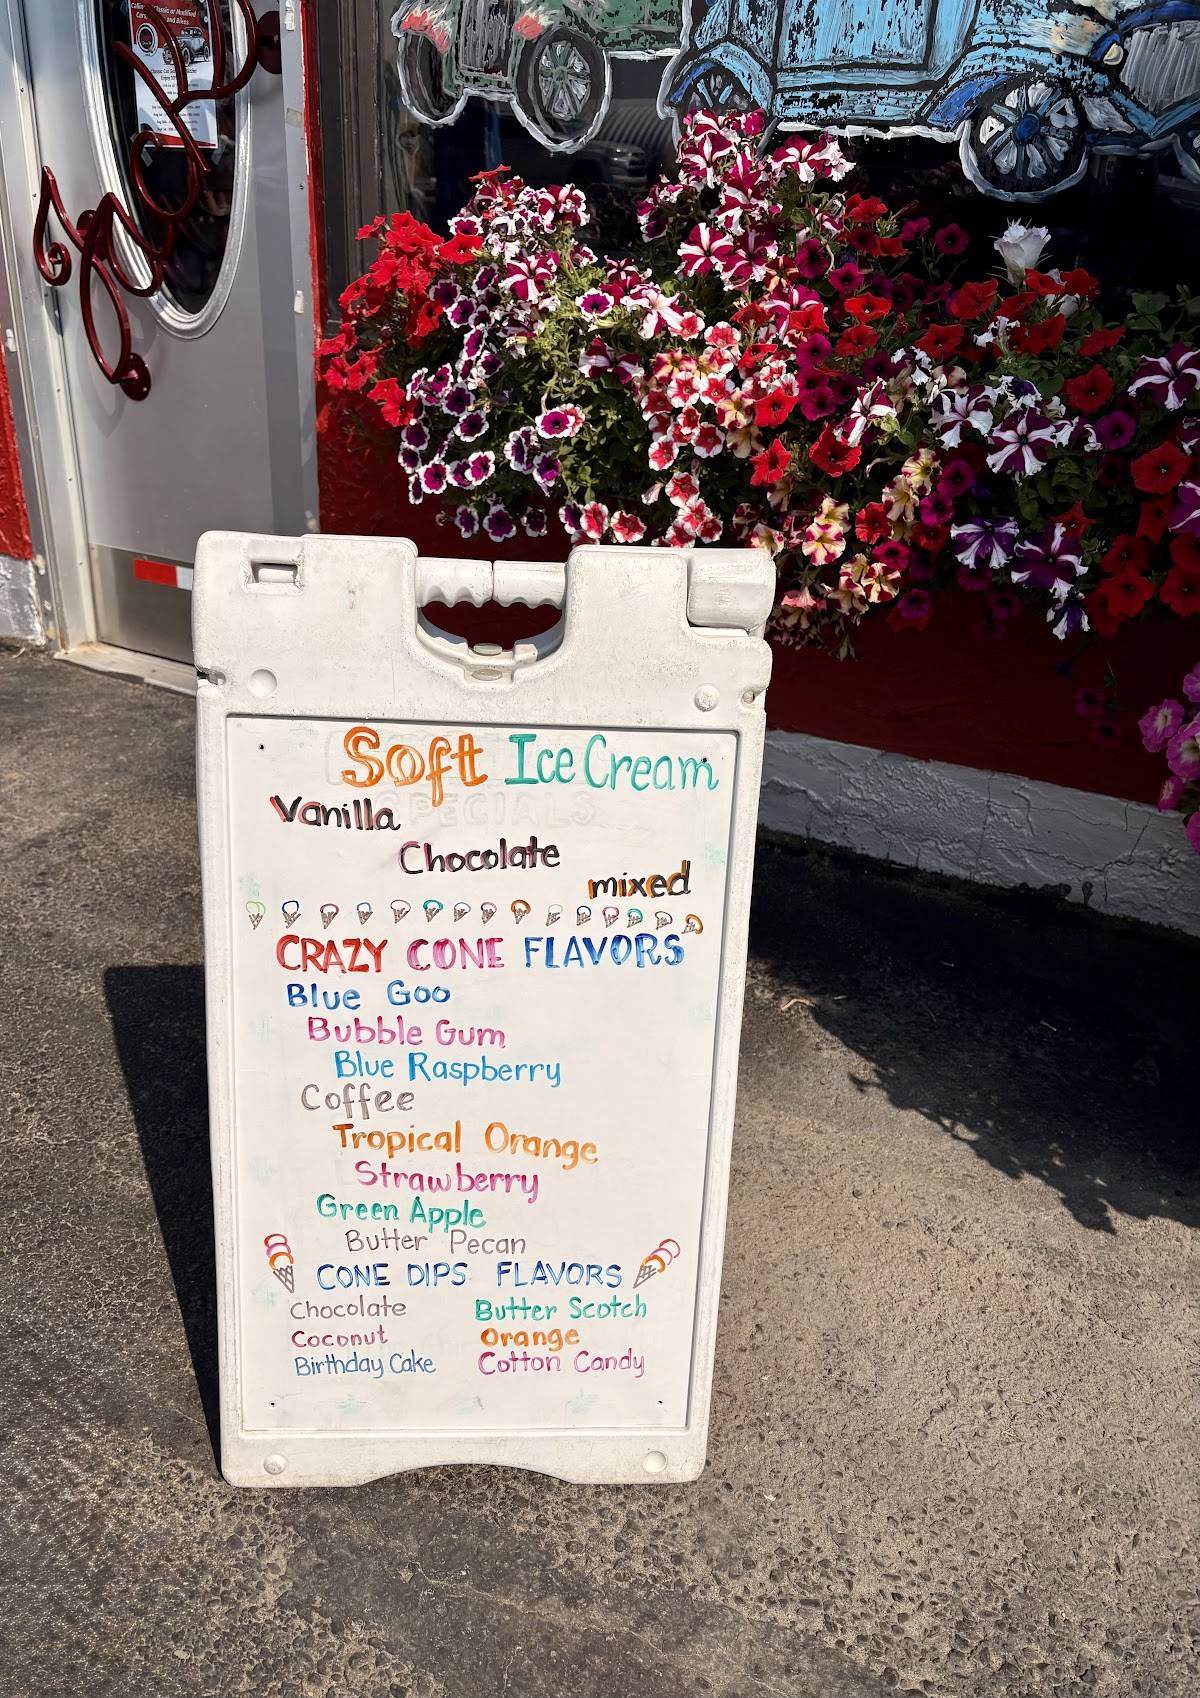 Classic or Modified
and Bikes
Soft Ice Cream
SPECIALS
Vanilla
Chocolate
mixed
CRAZY CONE FLAVORS
Blue Goo
Bubble Gum
Blue Raspberry
Coffee
Tropical Orange
Strawberry
Green Apple
Butter Pecan
CONE DIPS FLAVORS
Chocolate Butter Scotch
Coconut Orange
Birthday Cake Cotton Candy